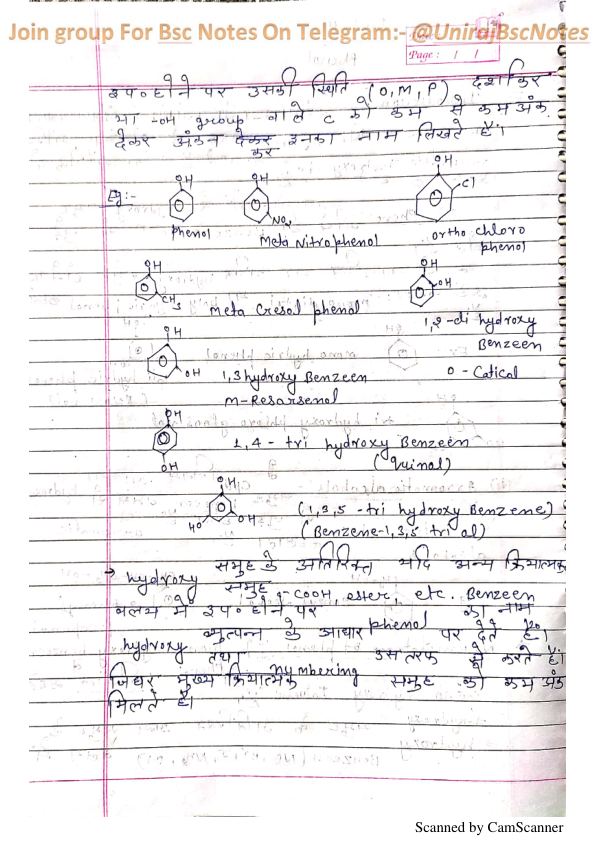 Join group For Bsc Notes On Telegram:- @UnirajBscNotes
Page: / /
उप० होने पर उसकी स्थिति (O, M, P) दर्शाकर
या -OH group वाले C को कम से कम अंक
देकर अंकन देकर इनका नाम लिखते हैं।
कर
Eg:-
OH OH OH
Cl
NO2
Phenol Meta Nitrophenol ortho chloro
phenol
OH OH
OH
CH3
Meta Cresol phenol
1,2-di hydroxy
Benzeen
OH
OH
1,3 hydroxy Benzeen O - Catical
M-Resarsenol
OH
1,4 - tri hydroxy Benzeen
OH
(Quinol)
OH
HO OH
(1,3,5 -tri hydroxy Benzene)
(Benzene-1,3,5 tri ol)
→ hydroxy समुह के अतिरिक्त यदि अन्य क्रियात्मक
समुह -COOH, ester, etc. Benzeen
वलय में उप० होने पर का नाम
व्युत्पन्न के आधार phenol पर देते है।
hydroxy तथा उस तरफ से करते हैं।
जिधर मुख्य क्रियात्मक numbering समुह को कम अंक
मिलते है।
Scanned by CamScanner